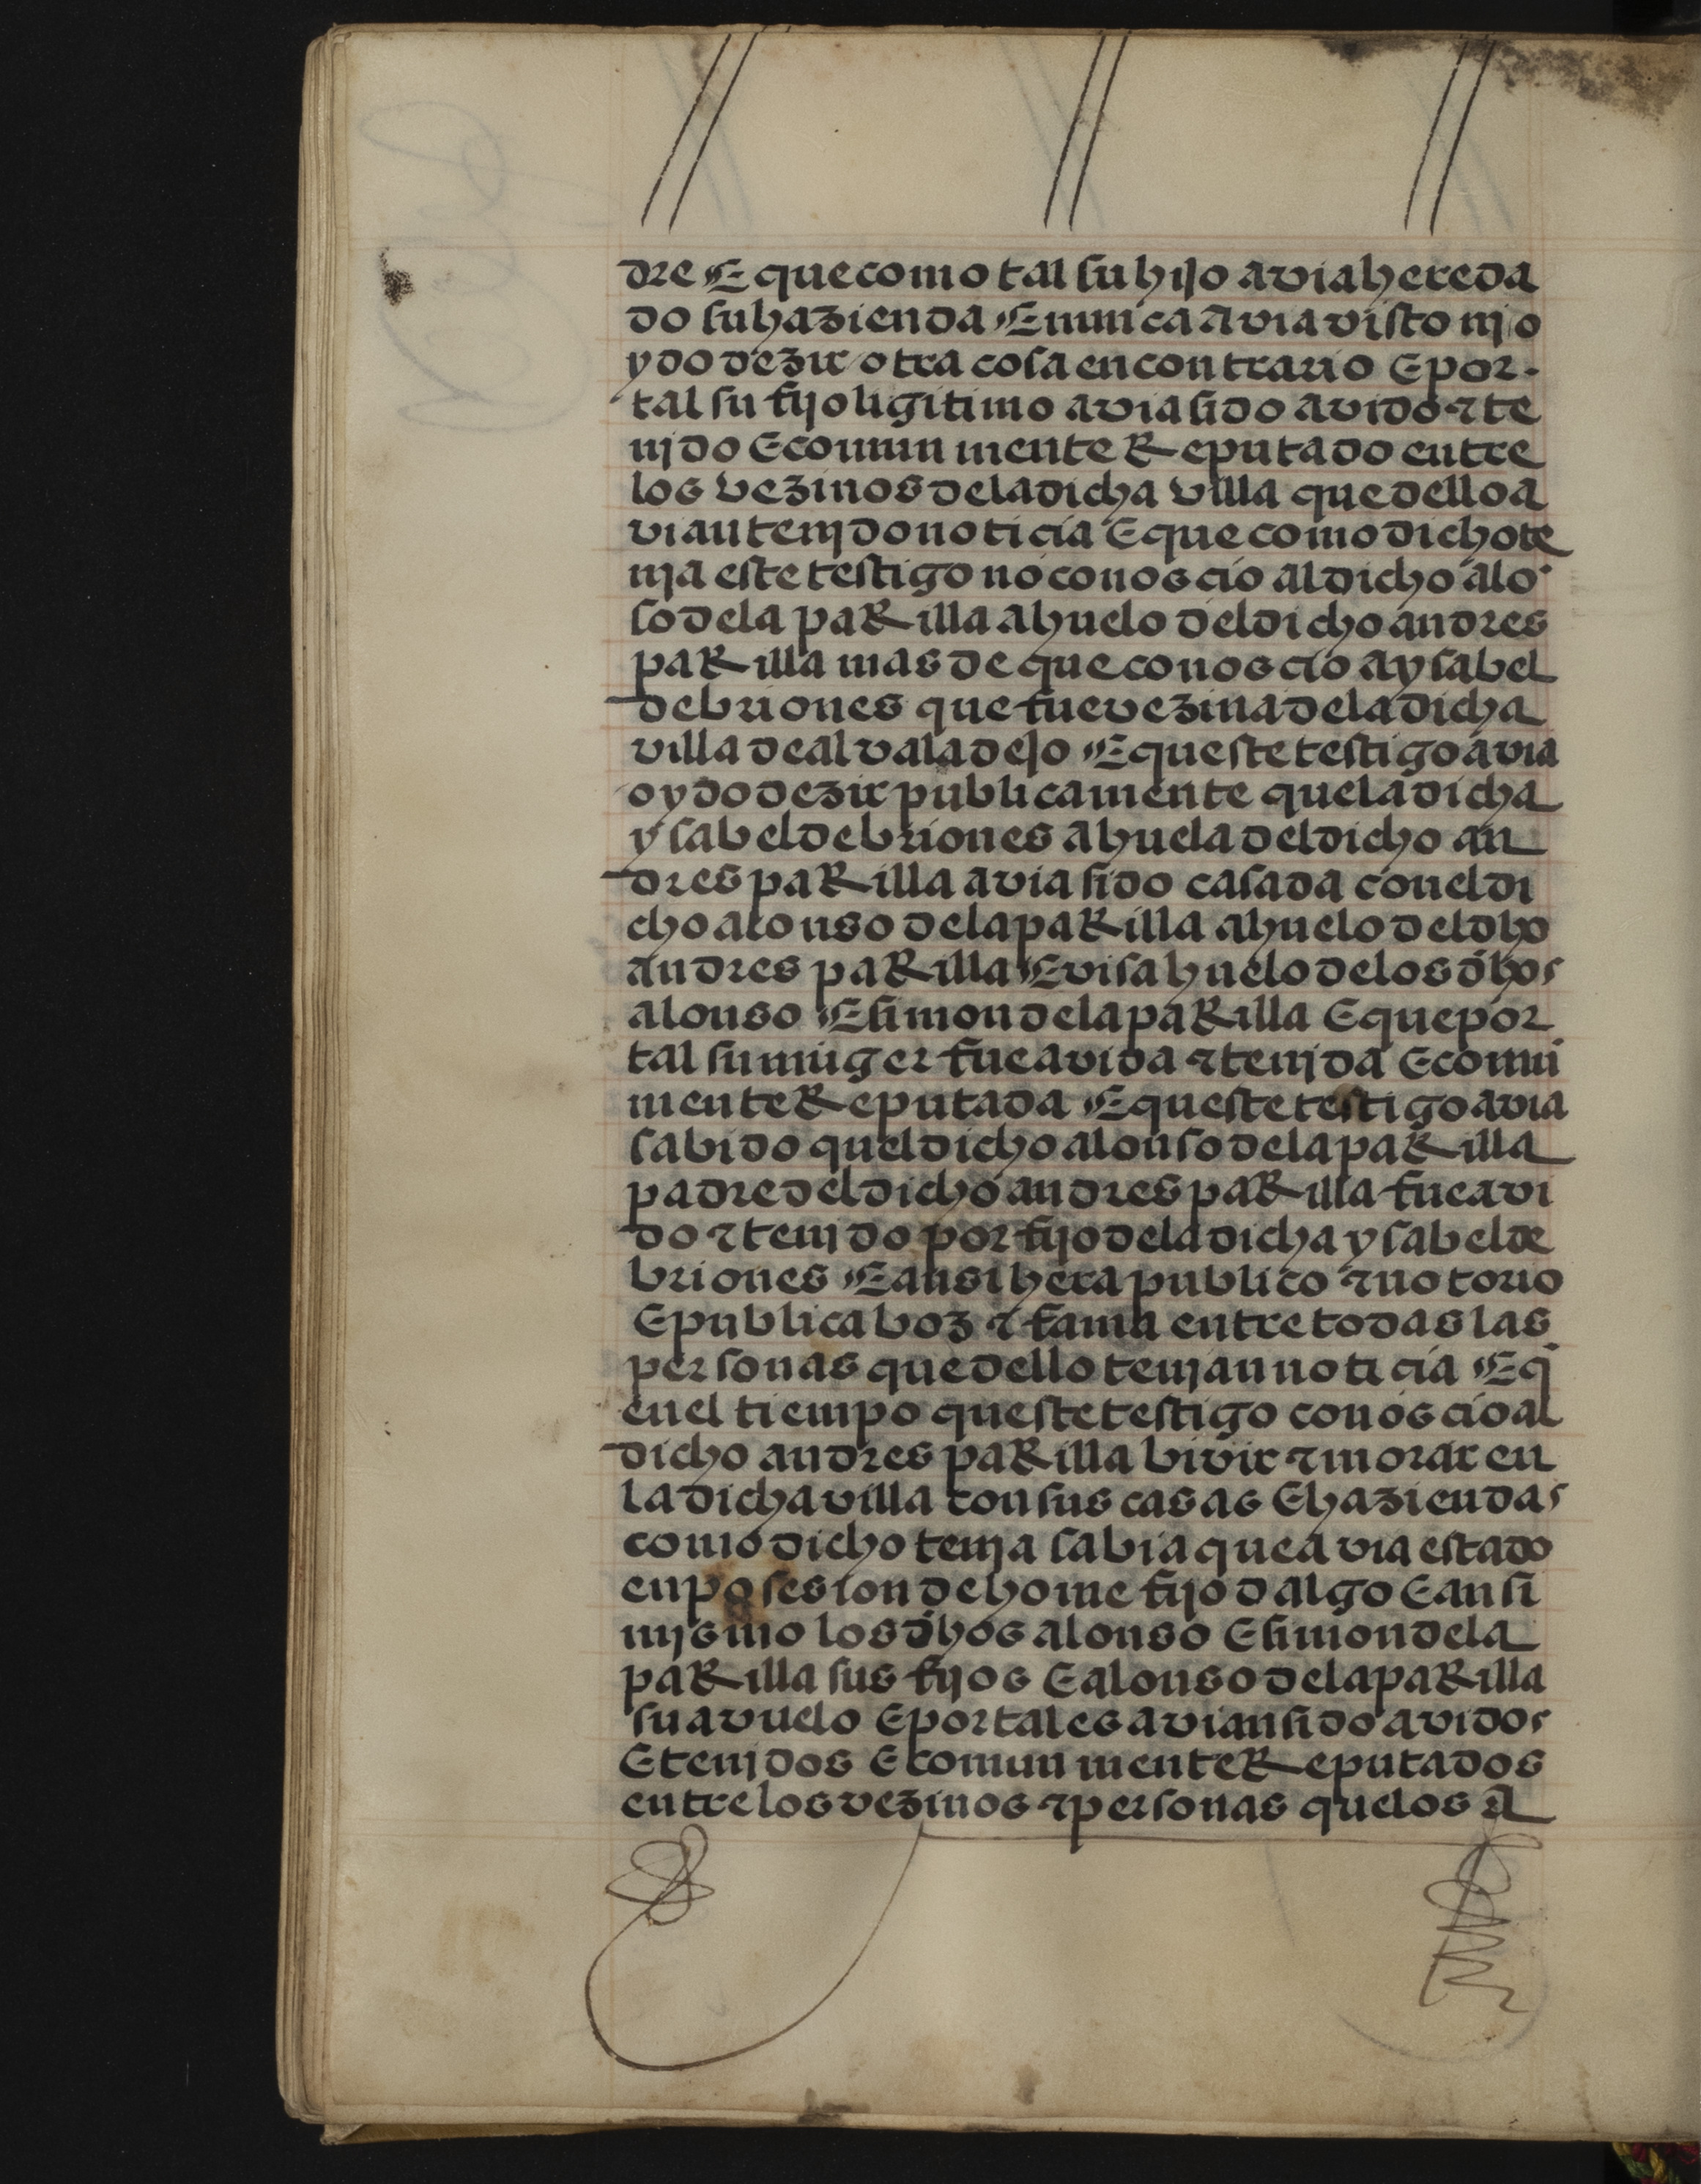 dre E que como tal su hijo avia hereda
do su hazienda E nunca avia visto nj o
ydo dezir otra cosa en contrario E por
tal su fijo ligitimo avia sido avido ⁊ te
njdo E comun mente Reputado entre
los vezinos de la dicha villa que dello a
vian tenjdo noticia E que como dicho te
nja este testigo no conoscio al dicho alo̅
so de la paRilla ahuelo del dicho andres
paRilla mas de que conoscio a ysabel
de briones que fue vezina de la dicha
villa de alvaladejo E queste testigo avia
oydo dezir publicamente que la dicha
ysabel de briones ahuela del dicho an
dres paRilla avia sido casada con el di
cho alonso de la paRilla ahuelo del dho
andres paRilla E visahuelo de los dhos
alonso E simon de la paRilla E que por
tal su muger fue avida ⁊ tenjda E comu̅
mente Reputada E queste testigo avia
sabido quel dicho alonso de la paRilla
padre del dicho andres paRilla fue avi
do ⁊ tenjdo por fijo de la dicha ysabel de
briones E ansi hera publico ⁊ notorio
E publica boz ⁊ fama entre todas las
personas que dello tenjan noticia E q̅
en el tiempo queste testigo conoscio al
dicho andres paRilla bivir ⁊ morar en
la dicha villa con sus casas E haziendas
como dicho tenja sabia que avia estado
en posesion de home fijo dalgo E ansi
mjsmo los dhos alonso E simon de la
paRilla sus fijos E alonso de la paRilla
su avuelo E por tales avian sido avidos
E tenjdos E comun mente Reputados
entre los vezinos ⁊ personas que los a